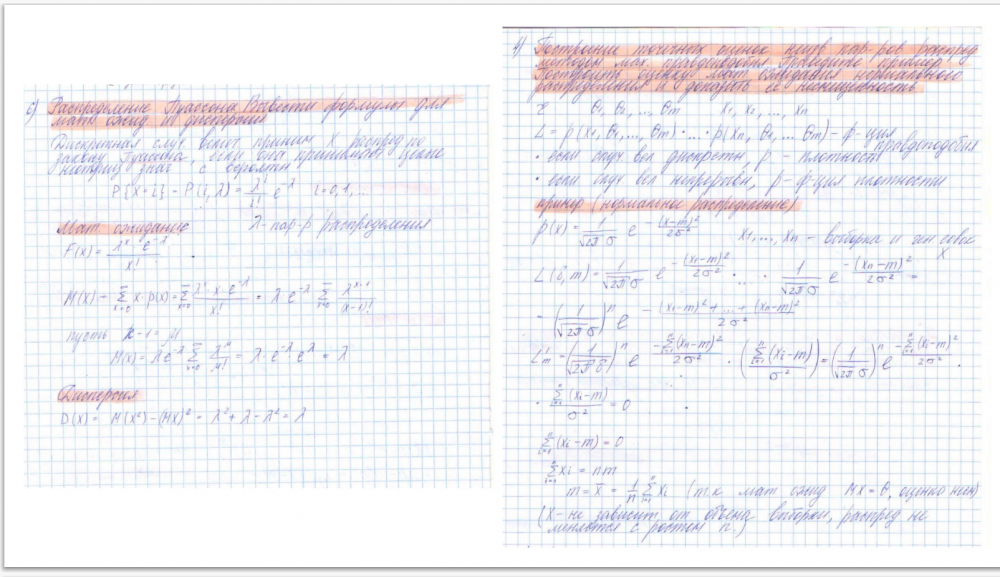 6) Распределение Пуассона. Вывести формулы для
мат. ожид. и дисперсии
Дискретная случ. велич. приним. X распред. по
закону Пуассона, если она принимает целые
неотриц. знач. с вероятн.
P{X=i} = P(i,λ) = λ^i/i! e^-λ i=0,1,...
Мат. ожидание λ-пар-р распределения
F(x) = λ^x e^-λ / x!
M(x) = Σ x·p(x) = Σ λ^x · x · e^-λ / x! = λ e^-λ Σ λ^(x-1)/(x-1)!
пусть x-1 = μ
M(x) = λ e^-λ Σ λ^μ/μ! = λ·e^-λ e^λ = λ
Дисперсия
D(x) = M(x²)-(Mx)² = λ²+λ-λ² = λ
Построение точечных оценок неизв. пар-ров распред.
методом мах. правдоподобия. Приведите пример.
Построить оценку мат. ожидания нормального
распределения и доказать её
θ1, θ2, ..., θm x1, x2, ..., xn
L = p(x1, θ1, ..., θm)·...·p(xn, θ1, ... θm) - ф-ция
правдоподобия
• если случ вел дискретн, p - плотност
• если случ вел непрерывн, p - ф-ция плотности
пример (нормальное распределение)
p(x) = 1/(√2π σ) e^(-(x-m)²/2σ²) x1, ..., xn - выборка из ген совок
X
L(σ, m) = 1/(√2π σ) e^(-(x1-m)²/2σ²) · ... · 1/(√2π σ) e^(-(xn-m)²/2σ²) =
= (1/(√2π σ))^n e^(-((x1-m)²+...+(xn-m)²)/2σ²)
L'm = (1/(√2π σ))^n e^(-Σ(xn-m)²/2σ²) · (Σ(xi-m)/σ²) = (1/(√2π σ))^n e^(-Σ(xi-m)²/2σ²) ·
· Σ(xi-m)/σ² = 0
Σ(xi-m) = 0
Σxi = nm
m = x̄ = 1/n Σxi (т.к. мат ожид MX = θ, оценка)
(X - не зависит от объема выборки, распред не
меняются с ростом n.)